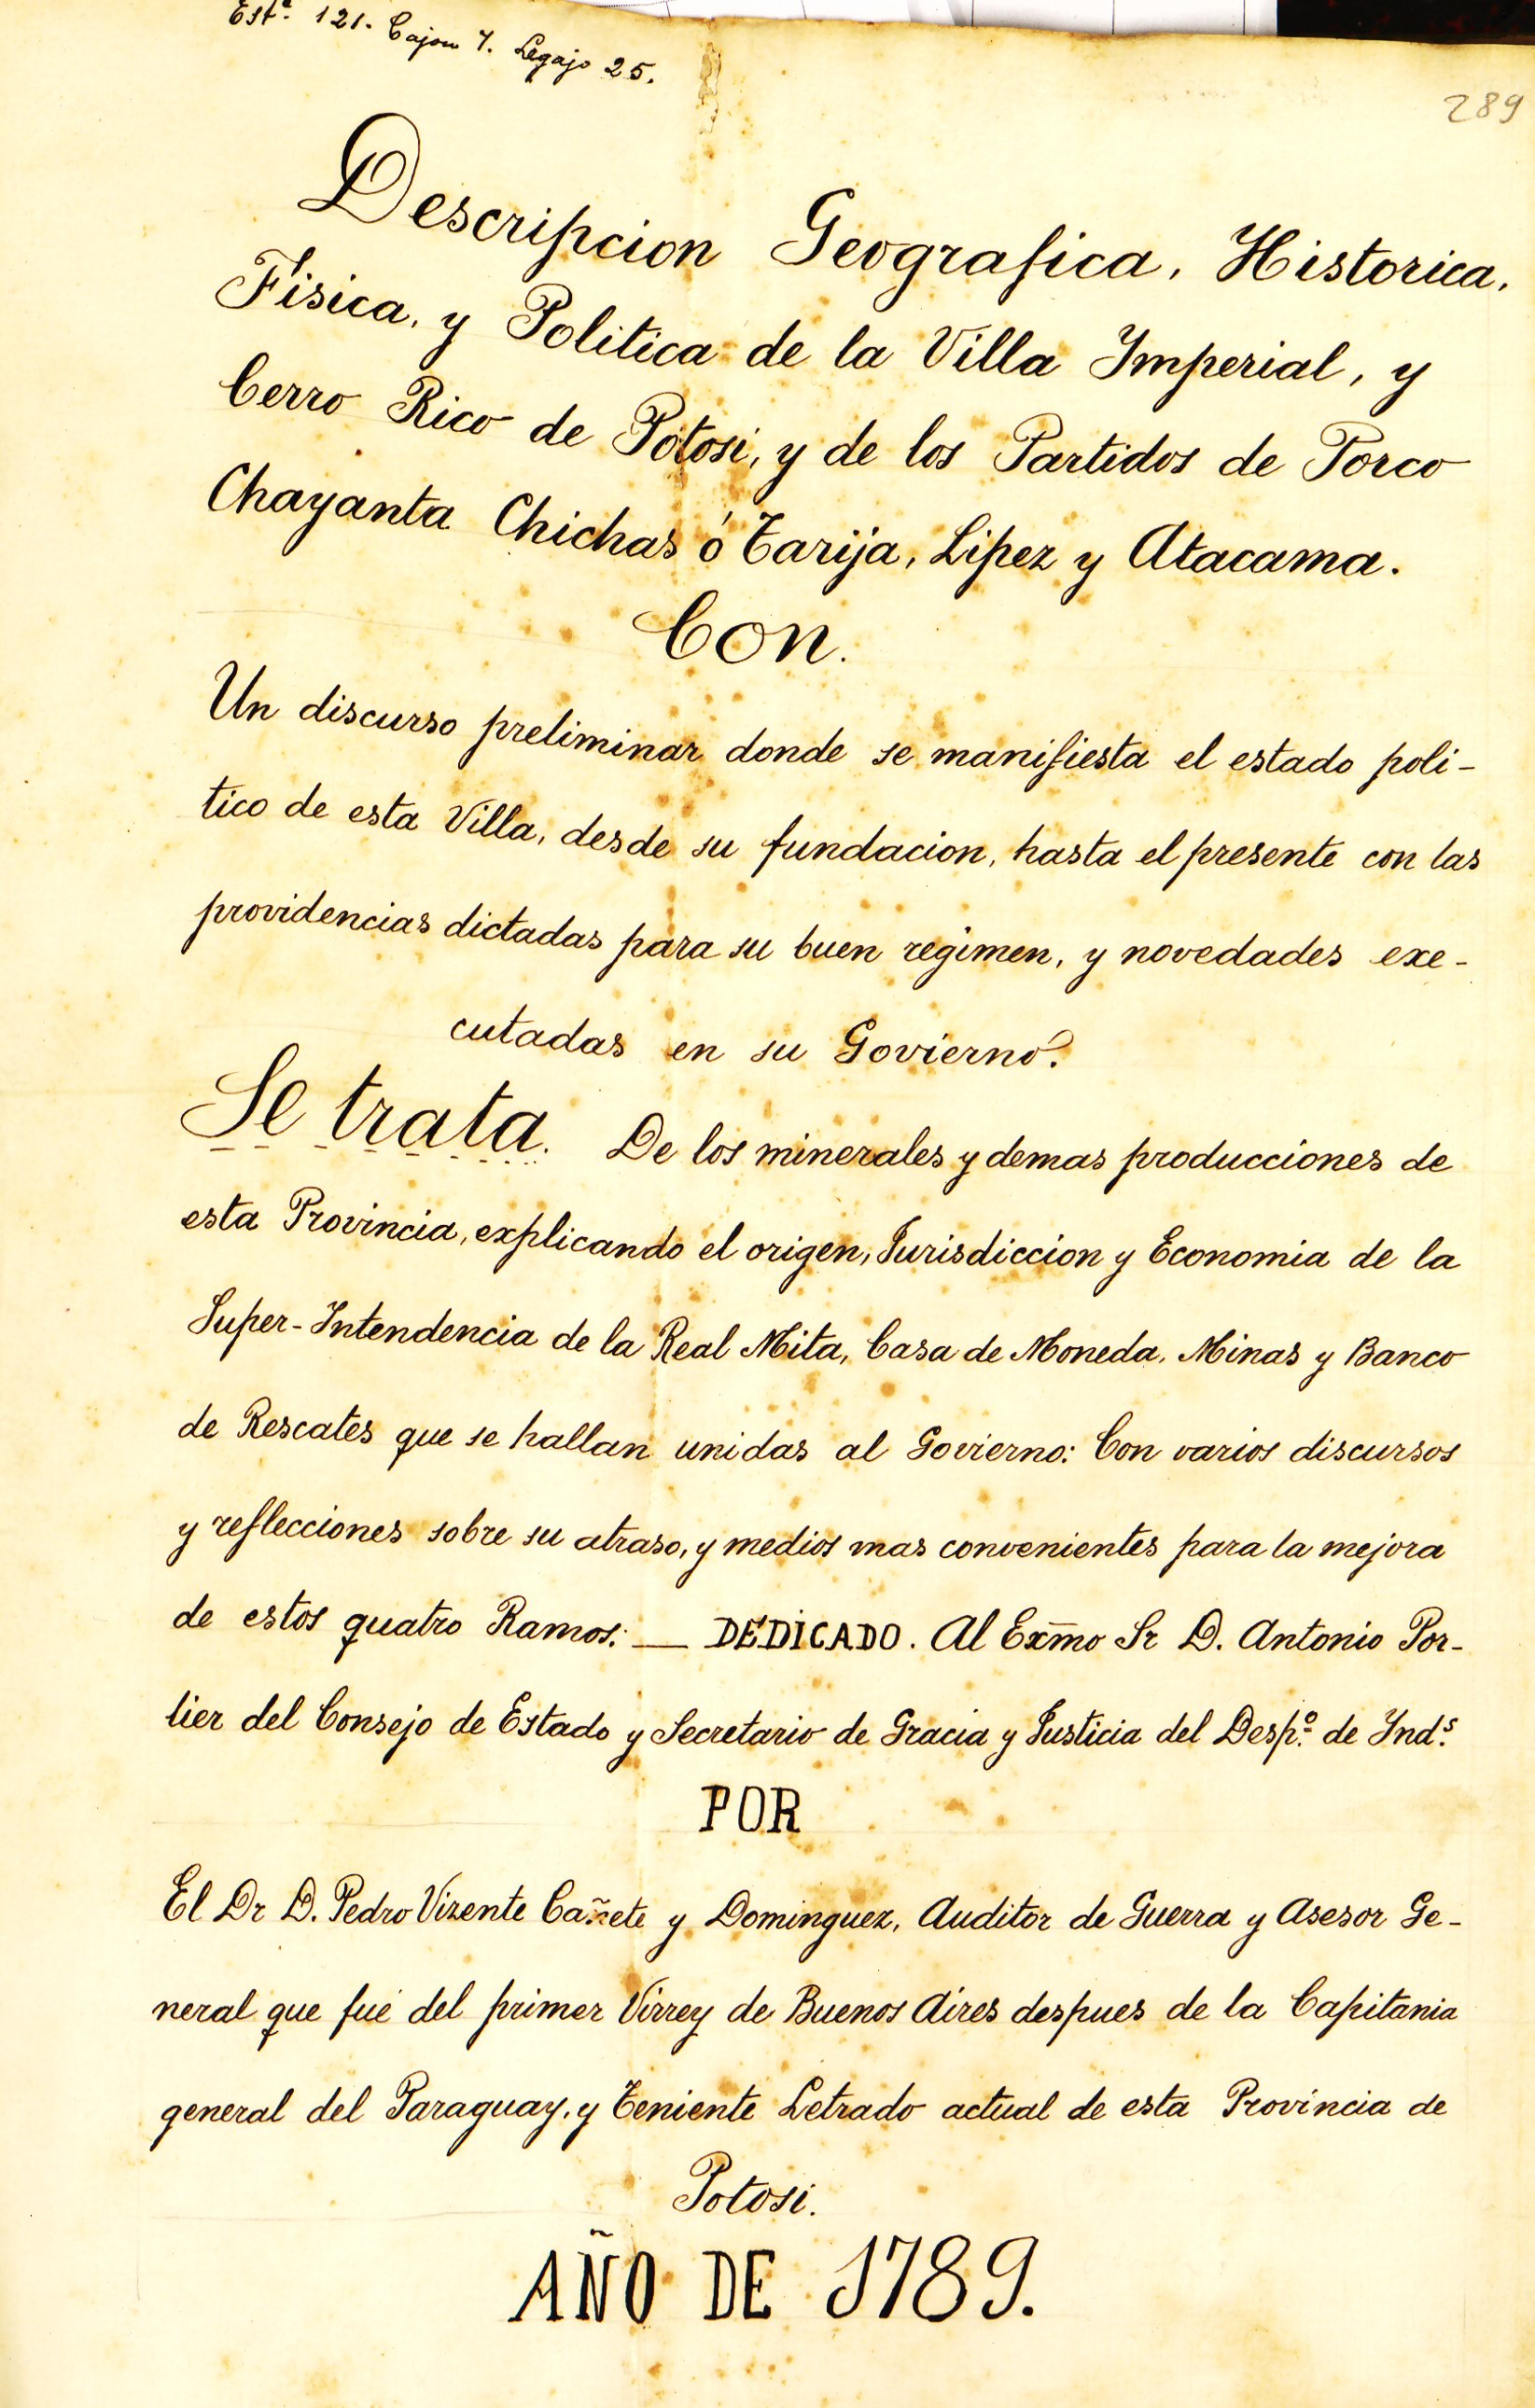 Estᵉ. 121. Cajon 7. Legajo 25.
289
Descripcion Geografica, Historica,
Fisica, y Politica de la Villa Imperial, y
Cerro Rico de Potosi, y de los Partidos de Porco
Chayanta Chichas ó Tarija, Lipez y Atacama.
Con.
Un discurso preliminar donde se manifiesta el estado poli-
tico de esta Villa, desde su fundacion, hasta el presente con las
providencias dictadas para su buen regimen, y novedades exe-
cutadas en su Govierno.
Se trata. De los minerales y demas producciones de
esta Provincia, explicando el origen, Jurisdiccion y Economia de la
Super-Intendencia de la Real Mita, Casa de Moneda, Minas y Banco
de Rescates que se hallan unidas al Govierno: Con varios discursos
y reflecciones sobre su atraso, y medios mas convenientes para la mejora
de estos quatro Ramos: — DEDICADO. Al Exm̄o Sr D. Antonio Por-
lier del Consejo de Estado y Secretario de Gracia y Justicia del Despº. de Yndˢ.
POR
El Dr D. Pedro Vizente Cañete y Dominguez, Auditor de Guerra y Asesor Ge-
neral que fué del primer Virrey de Buenos Aires despues de la Capitania
general del Paraguay, y Teniente Letrado actual de esta Provincia de
Potosi.
AÑO DE 1789.